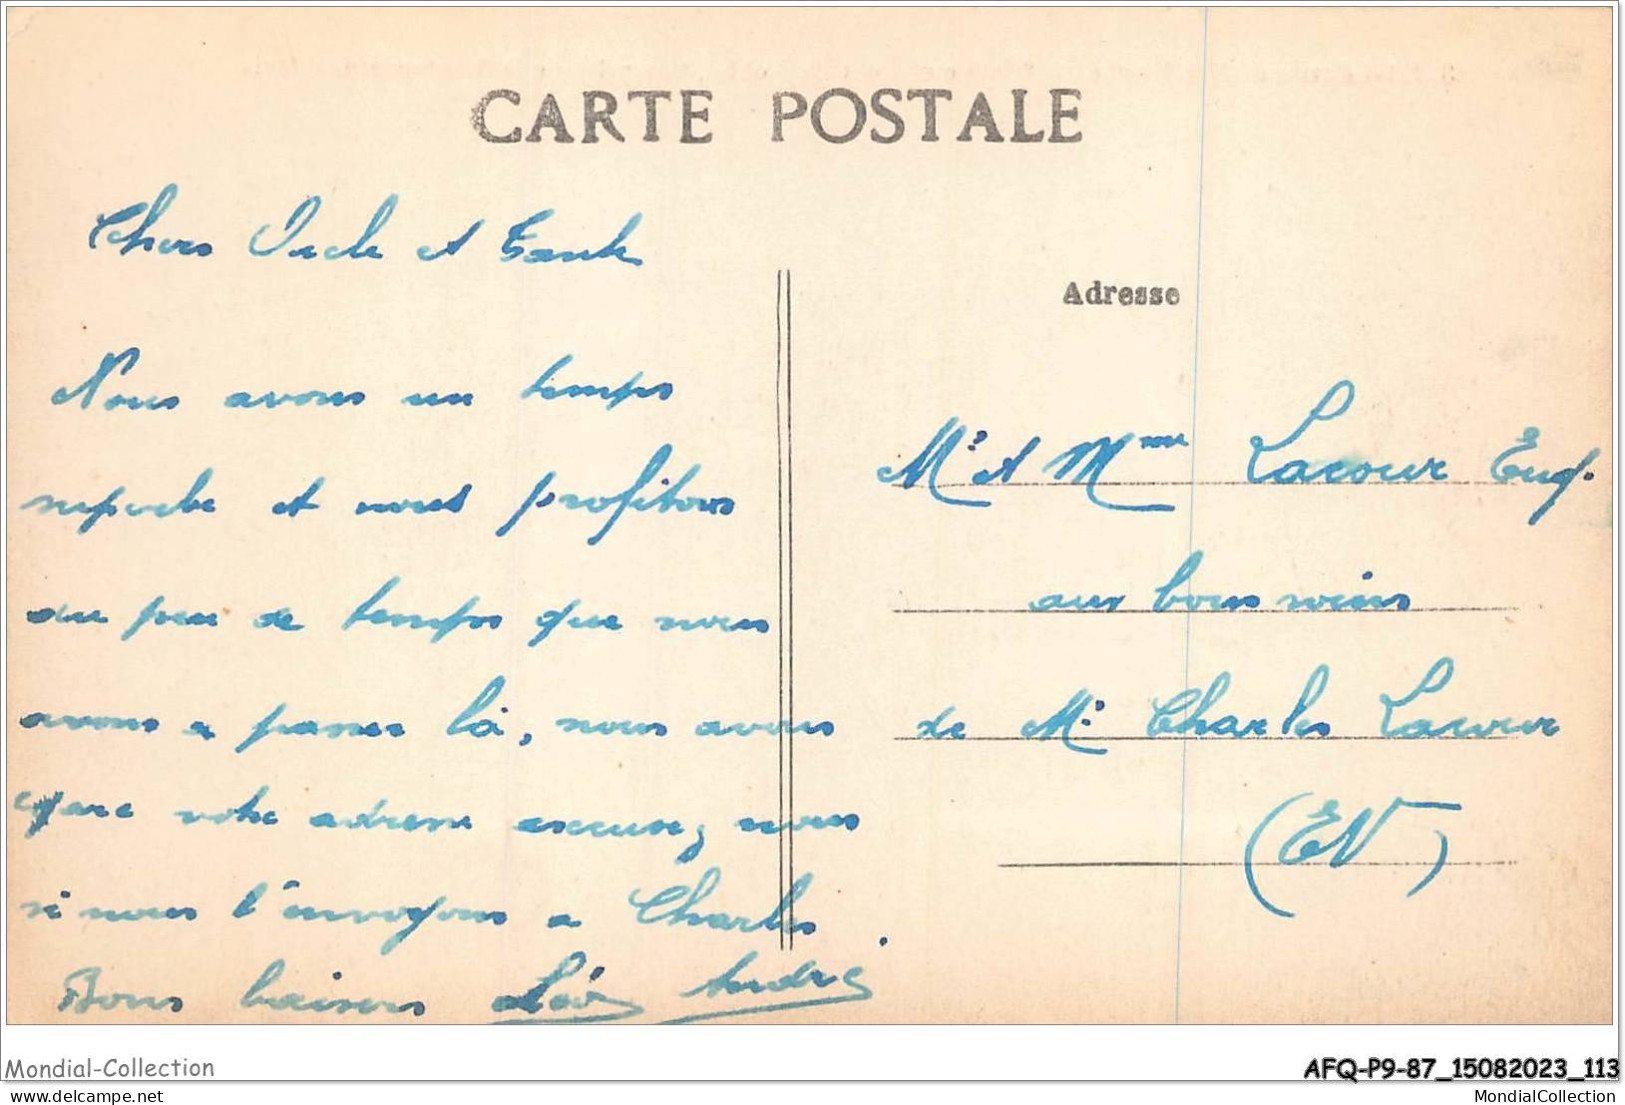 CARTE POSTALE
Chers Oncle et Tante
Adresse
Nous avons un temps
superbe et nous profitons
du peu de temps que nous
avons a passer là, nous avons
égaré votre adresse excusez nous
si nous l'envoyons a Charles.
Bons baisers Léo André
Mr et Mme Lacour Eug.
aux bons soins
de Mr Charles Lacour
(EV)
Mondial-Collection
AFQ-P9-87_15082023_113
delcampe.net
MondialCollection